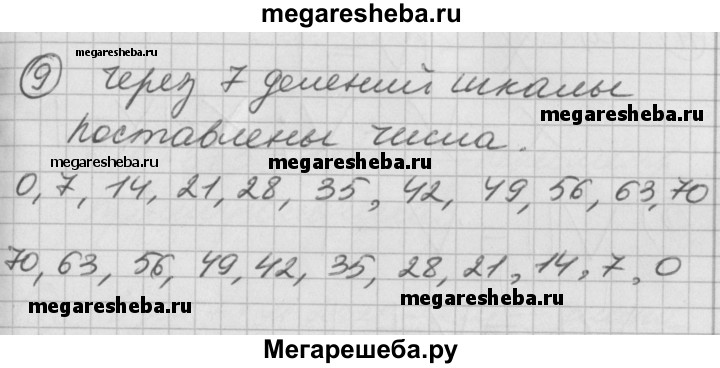 megaresheba.ru
megaresheba.ru
9 Через 7 делений шкалы
megaresheba.ru
поставлены числа.
megaresheba.ru megaresheba.ru
0, 7, 14, 21, 28, 35, 42, 49, 56, 63, 70
70, 63, 56, 49, 42, 35, 28, 21, 14, 7, 0
megaresheba.ru megaresheba.ru
Мегарешеба.ру